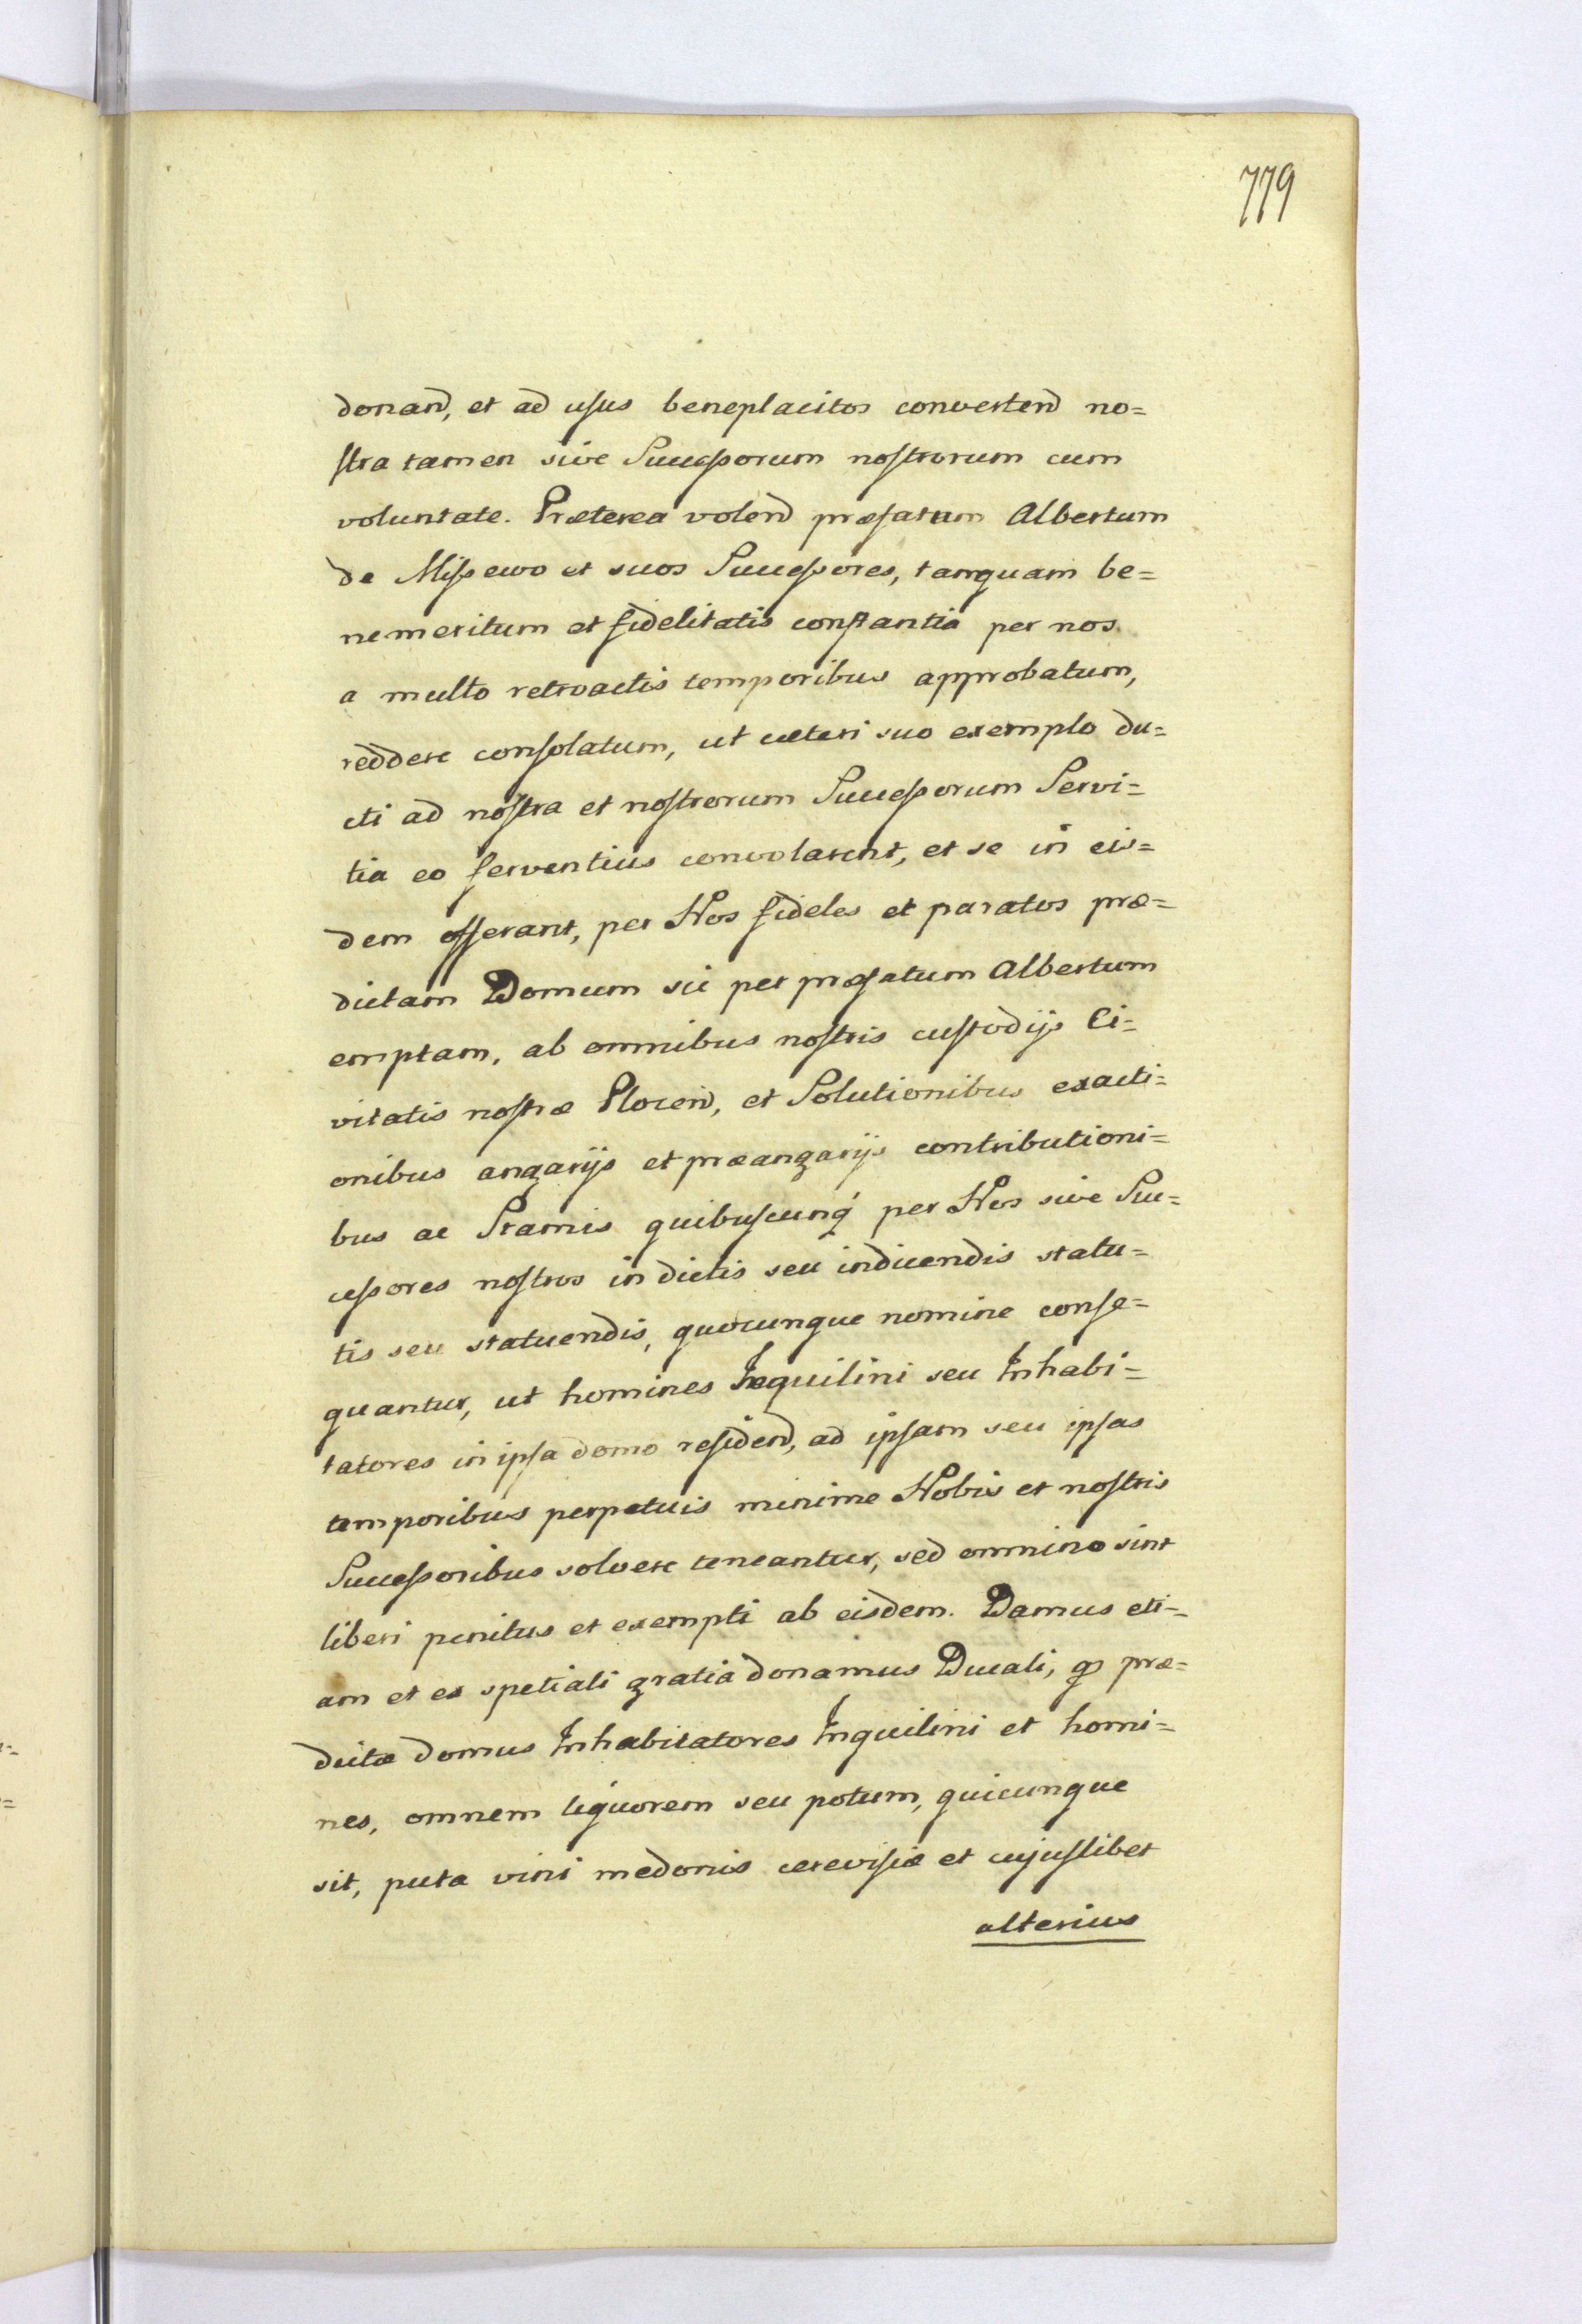 779
donand, et ad usus beneplacitos convertend no=
stra tamen sive Successorum nostrorum cum
voluntate. Præterea volend præfatum Albertum
de Missewo et suos Successores, tanquam be=
nemeritum et fidelitatis constantia per nos
a multo retroactis temporibus approbatum,
reddere consolatum, ut cæteri suo exemplo du=
cti ad nostra et nostrorum Successorum Servi=
tia eo ferventius convolarent, et se in eis=
dem offerant, per Nos fideles et paratos præ=
dictam Domum sic per præfatum Albertum
emptam, ab omnibus nostris custodijs Ci=
vitatis nostræ Plocen, et Solutionibus exacti=
onibus angarijs et præangarijs contributioni=
bus ac Stamis quibuscunq per Nos sive Suc=
cessores nostros indictis seu indicendis statu=
tis seu statuendis, quocunque nomine conse=
quantur, ut homines Inquilini seu Inhabi=
tatores in ipsa domo residend, ad ipsam seu ipsas
temporibus perpetuis minime Nobis et nostris
Successoribus solvere teneantur, sed omnino sint
liberi penitus et exempti ab eisdem. Damus eti=
am et ex spetiali gratia donamus Ducali, qd præ=
dictæ domus Inhabitatores Inquilini et homi=
nes, omnem liquorem seu potum, quicunque
sit, puta vini medonis cerevisiæ et cujuslibet
alterius